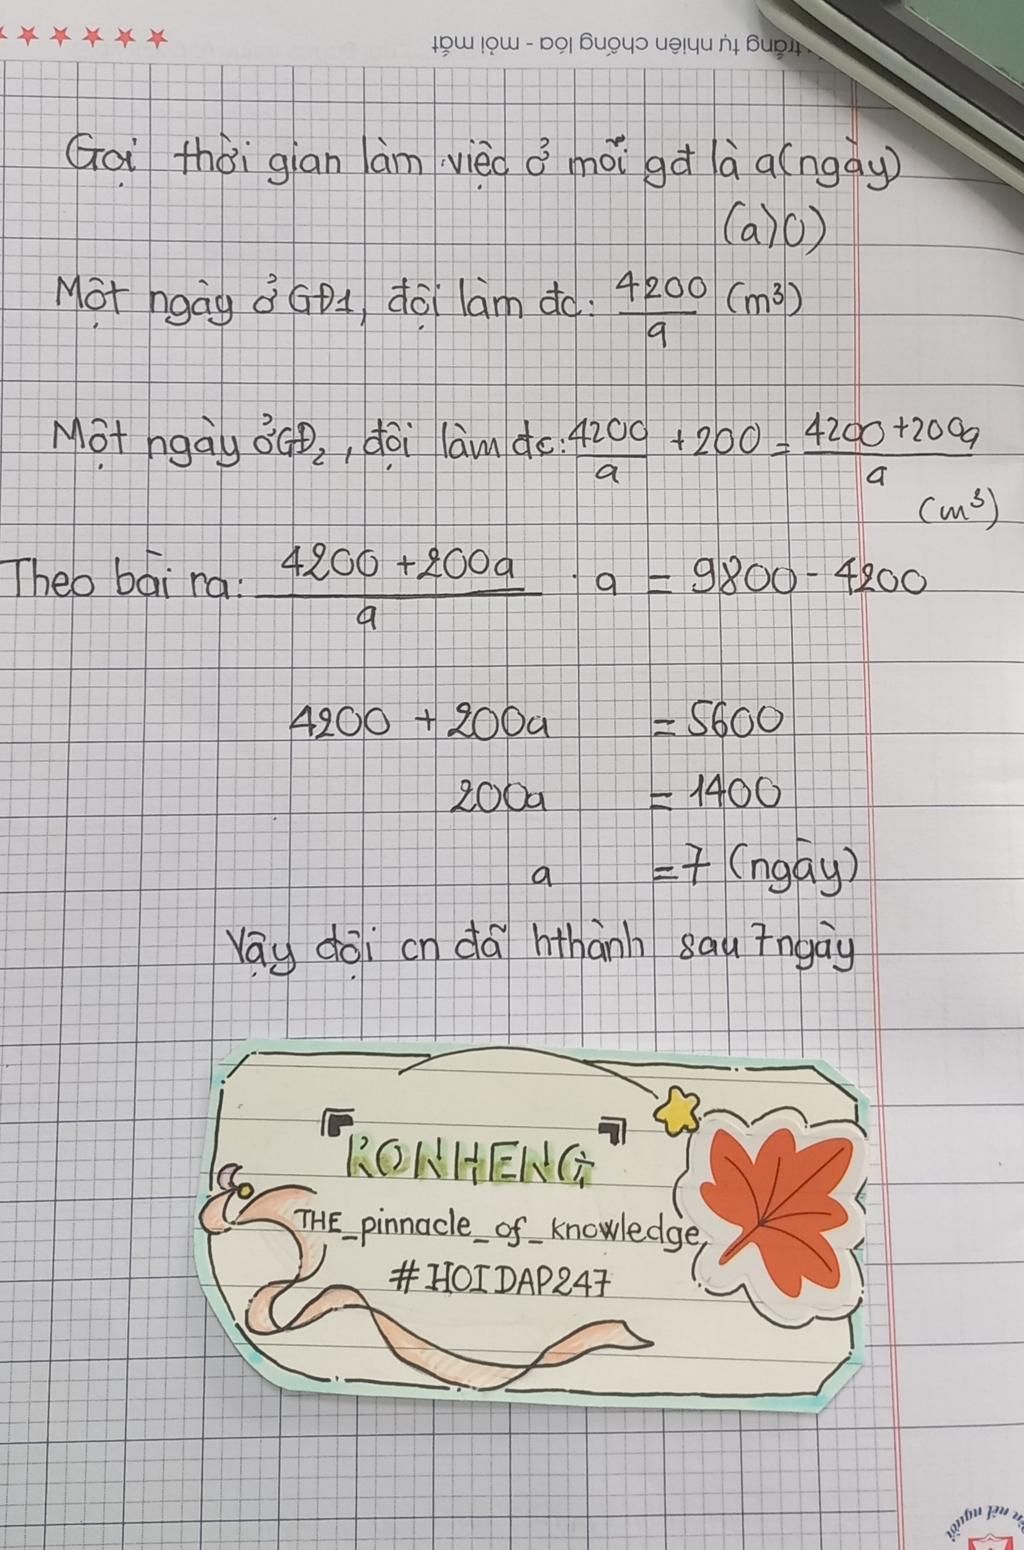 trắng tự nhiên chống lóa - mỏi mắt
Gọi thời gian làm việc ở mỗi gđ là a(ngày)
(a>0)
Một ngày ở GĐ1, đội làm đc: 4200/a (m³)
Một ngày ở GĐ₂, đội làm đc: 4200/a + 200 = (4200+200a)/a
(m³)
Theo bài ra: (4200 + 200a)/a . a = 9800 - 4200
4200 + 200a = 5600
200a = 1400
a = 7 (ngày)
Vậy đội cn đã hthành sau 7 ngày
『RONHENG』
THE_pinnacle_of_knowledge
#HOIDAP247
nết người